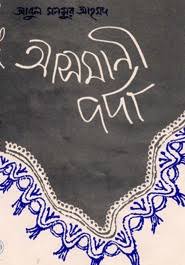 আবুল মনসুর আহমদ
আসমানী
পর্দা